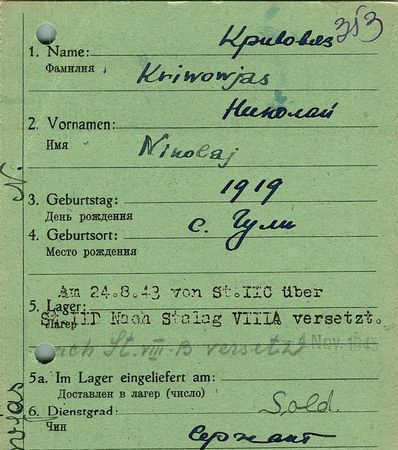 Кривовяз 353
1. Name:
Фамилия Kriwowjas
Николай
2. Vornamen:
Имя Nikolaj
N.
1919
3. Geburtstag:
День рождения с. Гули
4. Geburtsort:
Место рождения
Am 24.8.43 von St.IIC über
5. Lager:
St. Nach Stalag VIIIA versetzt.
Лагерь
nach St. VIII-B versetzt Nov.
5a. Im Lager eingeliefert am:
Доставлен в лагер (число)
6. Dienstgrad: Sold.
Чин Сержант